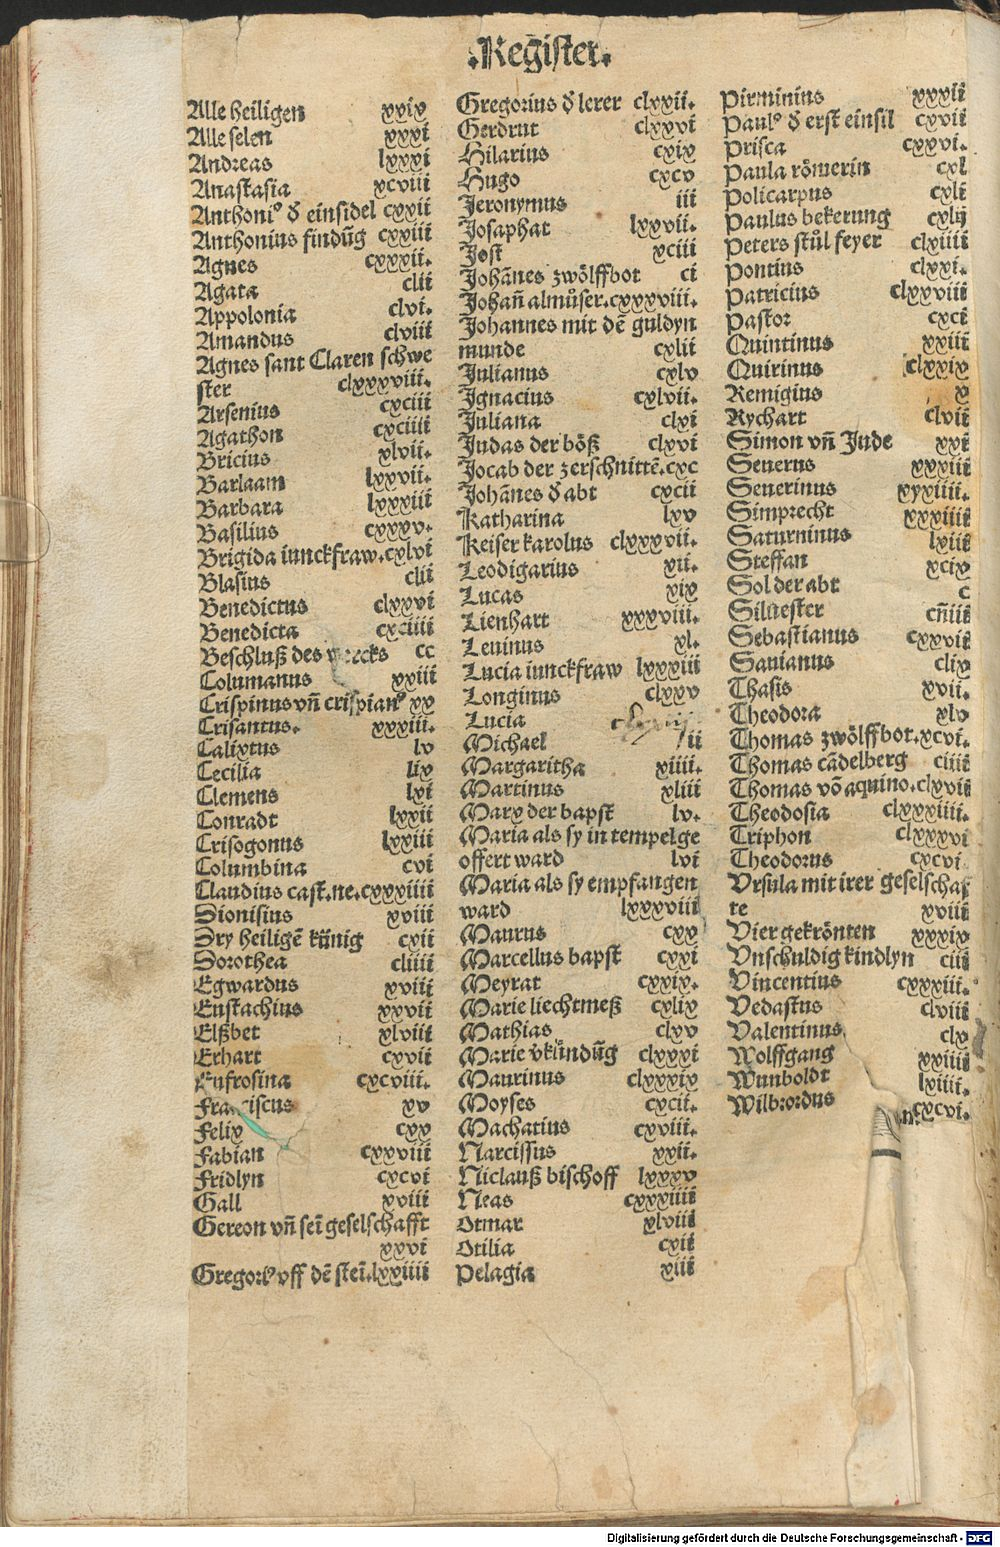 .Register.
Alle heiligen xxix
Alle selen xxxi
Andreas lxxxi
Anastasia xcviii
Anthoni⁹ d̕ einsidel cxxii
Anthonius findūg cxxiii
Agnes cxxxii.
Agata clii
Appolonia clvi.
Amandus clviii
Agnes sant Claren schwe
ster clxxxviii.
Arsenius cxciii
Agathon cxciiii
Bricius xlvii.
Barlaam lxxvii.
Barbara lxxxiii
Basilius cxxxv.
Brigida iunckfraw.cxlvi
Blasius clii
Benedictus clxxvi
Benedicta cxciiii
Beschluß des cc
Columanus xxiii
Crispinus vn̄ crispian⁹ xx
Crisantus. xxxiii.
Calixtus lv
Cecilia lix
Clemens lxi
Conradt lxxii
Crisogonus lxxiii
Columbina cvi
Claudius cast.ne.cxxxiiii
Dionisius xviii
Dry heiligē künig cxii
Dorothea cliiii
Egwardus xviii
Eustachius xxvii
Elßbet xlviii
Erhart cxvii
Eufrosina cxcviii.
Franciscus xv
Felix cxx
Fabian cxxviii
Fridlyn cxcvi
Gall xviii
Gereon vn̄ sei̅ geselschafft
xxvi
Gregori⁹ vff dē stei̅.lxxiiii
Gregorius d̕ lerer clxxii.
Gerdrut clxxvi
Hilarius cxix
Hugo cxcv
Jeronymus iii
Josaphat lxxvii.
Jost xciii
Johānes zwölffbot ci
Johan̄ almůser.cxxxviii.
Johannes mit dē guldyn
munde cxlii
Julianus cxlv
Ignacius cxlvii.
Juliana clxi
Judas der böß clxvi
Jocab der zerschnittē.cxc
Johānes d̕ abt cxcii
Katharina lxv
Keiser karolus clxxxvii.
Leodigarius xii.
Lucas xix
Lienhart xxxviii.
Leuinus xl.
Lucia iunckfraw lxxxiii
Longinus clxxv
Lucia
Michael ii
Margaritha xiiii.
Martinus xliii
Marx der bapst lv.
Maria als sy in tempel ge
offert ward lvi
Maria als sy empfangen
ward lxxxviii
Maurus cxx
Marcellus bapst cxxi
Meyrat cxxix.
Marie liechtmeß cxlix
Mathias clxv
Marie v̈kündūg clxxxi
Maurinus clxxxix
Moyses cxcii.
Machatius cxviii.
Narcissus xxii.
Niclauß bischoff lxxxv
Neas cxxxiiii
Otmar xlviii
Otilia cxii
Pelagia xiii
Pirminius xxxii
Paul⁹ d̕ erst einsil cxvii
Prisca cxxvi.
Paula römerin cxl
Policarpus cxli
Paulus bekerung cxlij
Peters stůl feyer clxiiii
Pontius clxxi.
Patricius clxxviii
Pastor cxci
Quintinus xxiii
Quirinus clxxix
Remigius x
Rychart clvii
Simon vn̄ Jude xxi
Seuerus xxxiii
Seuerinus xxxiiii.
Simprecht xxxiiii
Saturninus lxiii
Steffan xcix
Sol der abt c
Siluester cn̄iii
Sebastianus cxxvii
Sauianus clix
Thasis xvii.
Theodora xlv
Thomas zwölffbot.xcvi.
Thomas cādelberg ciiii
Thomas vō aquino.clxvii
Theodosia clxxxiiii.
Triphon clxxxvi
Theodorus cxcvi
Vrsula mit irer geselschaf
te xviii
Vier gekrönten xxxix
Vnschuldig kindlyn ciii
Vincentius cxxxiii.
Vedastus clviii
Valentinus clx
Wolffgang xxiiii
Wunboldt lxiiii.
Wilbrordus cxcvi.
Digitalisierung gefördert durch die Deutsche Forschungsgemeinschaft - DFG